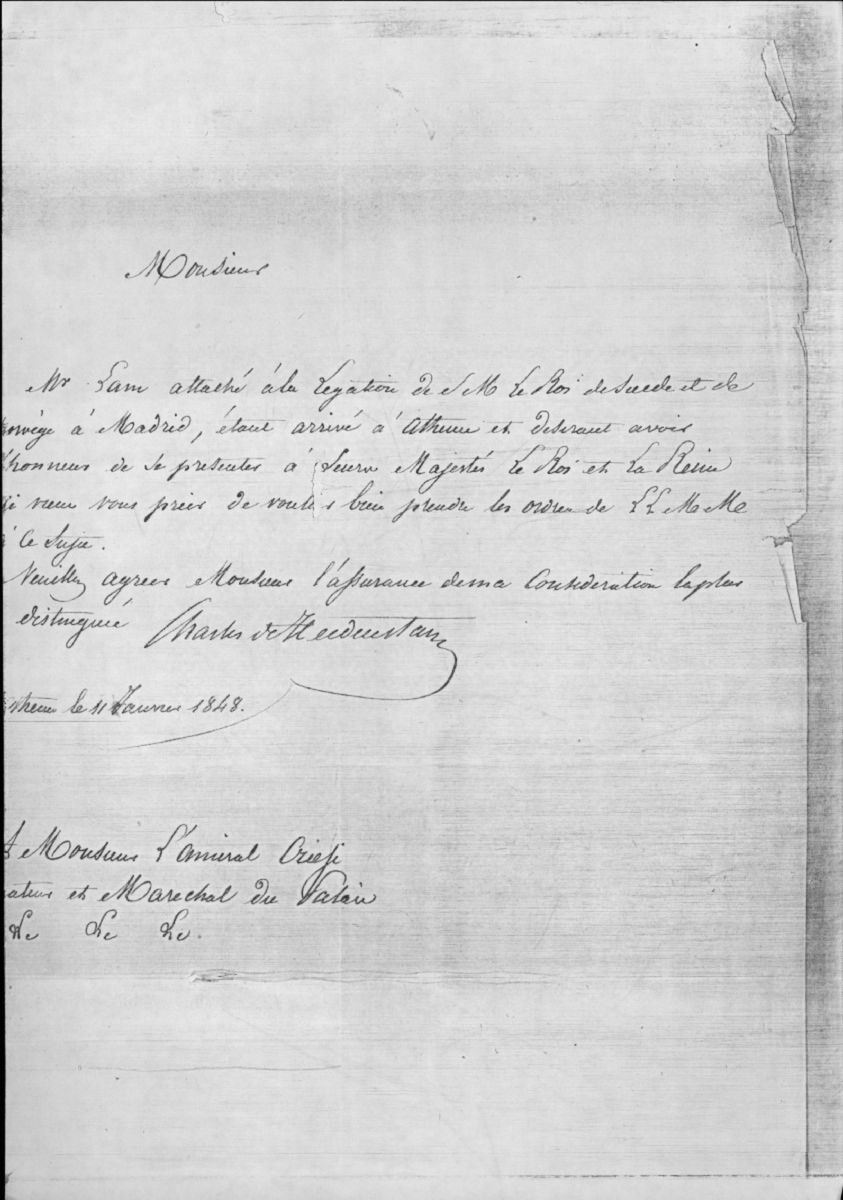 Monsieur
Mr Lam attaché à la Legation de S M Le Roi de Suede et de
Norvége à Madrid, étant arrivé à Athenes et desirant avoir
l'honneur de se presenter à Leurs Majestés Le Roi et La Reine
je viens vous prier de vouloir bien prendre les ordres de LL MM
à ce Sujet.
Veuillez agreer Monsieur l'assurance de ma Consideration la plus
distinguée Charles de Heidenstam
Athenes le 11 Janvier 1848.
A Monsieur L'amiral Criesi
et Marechal du Palais
&c &c &c.